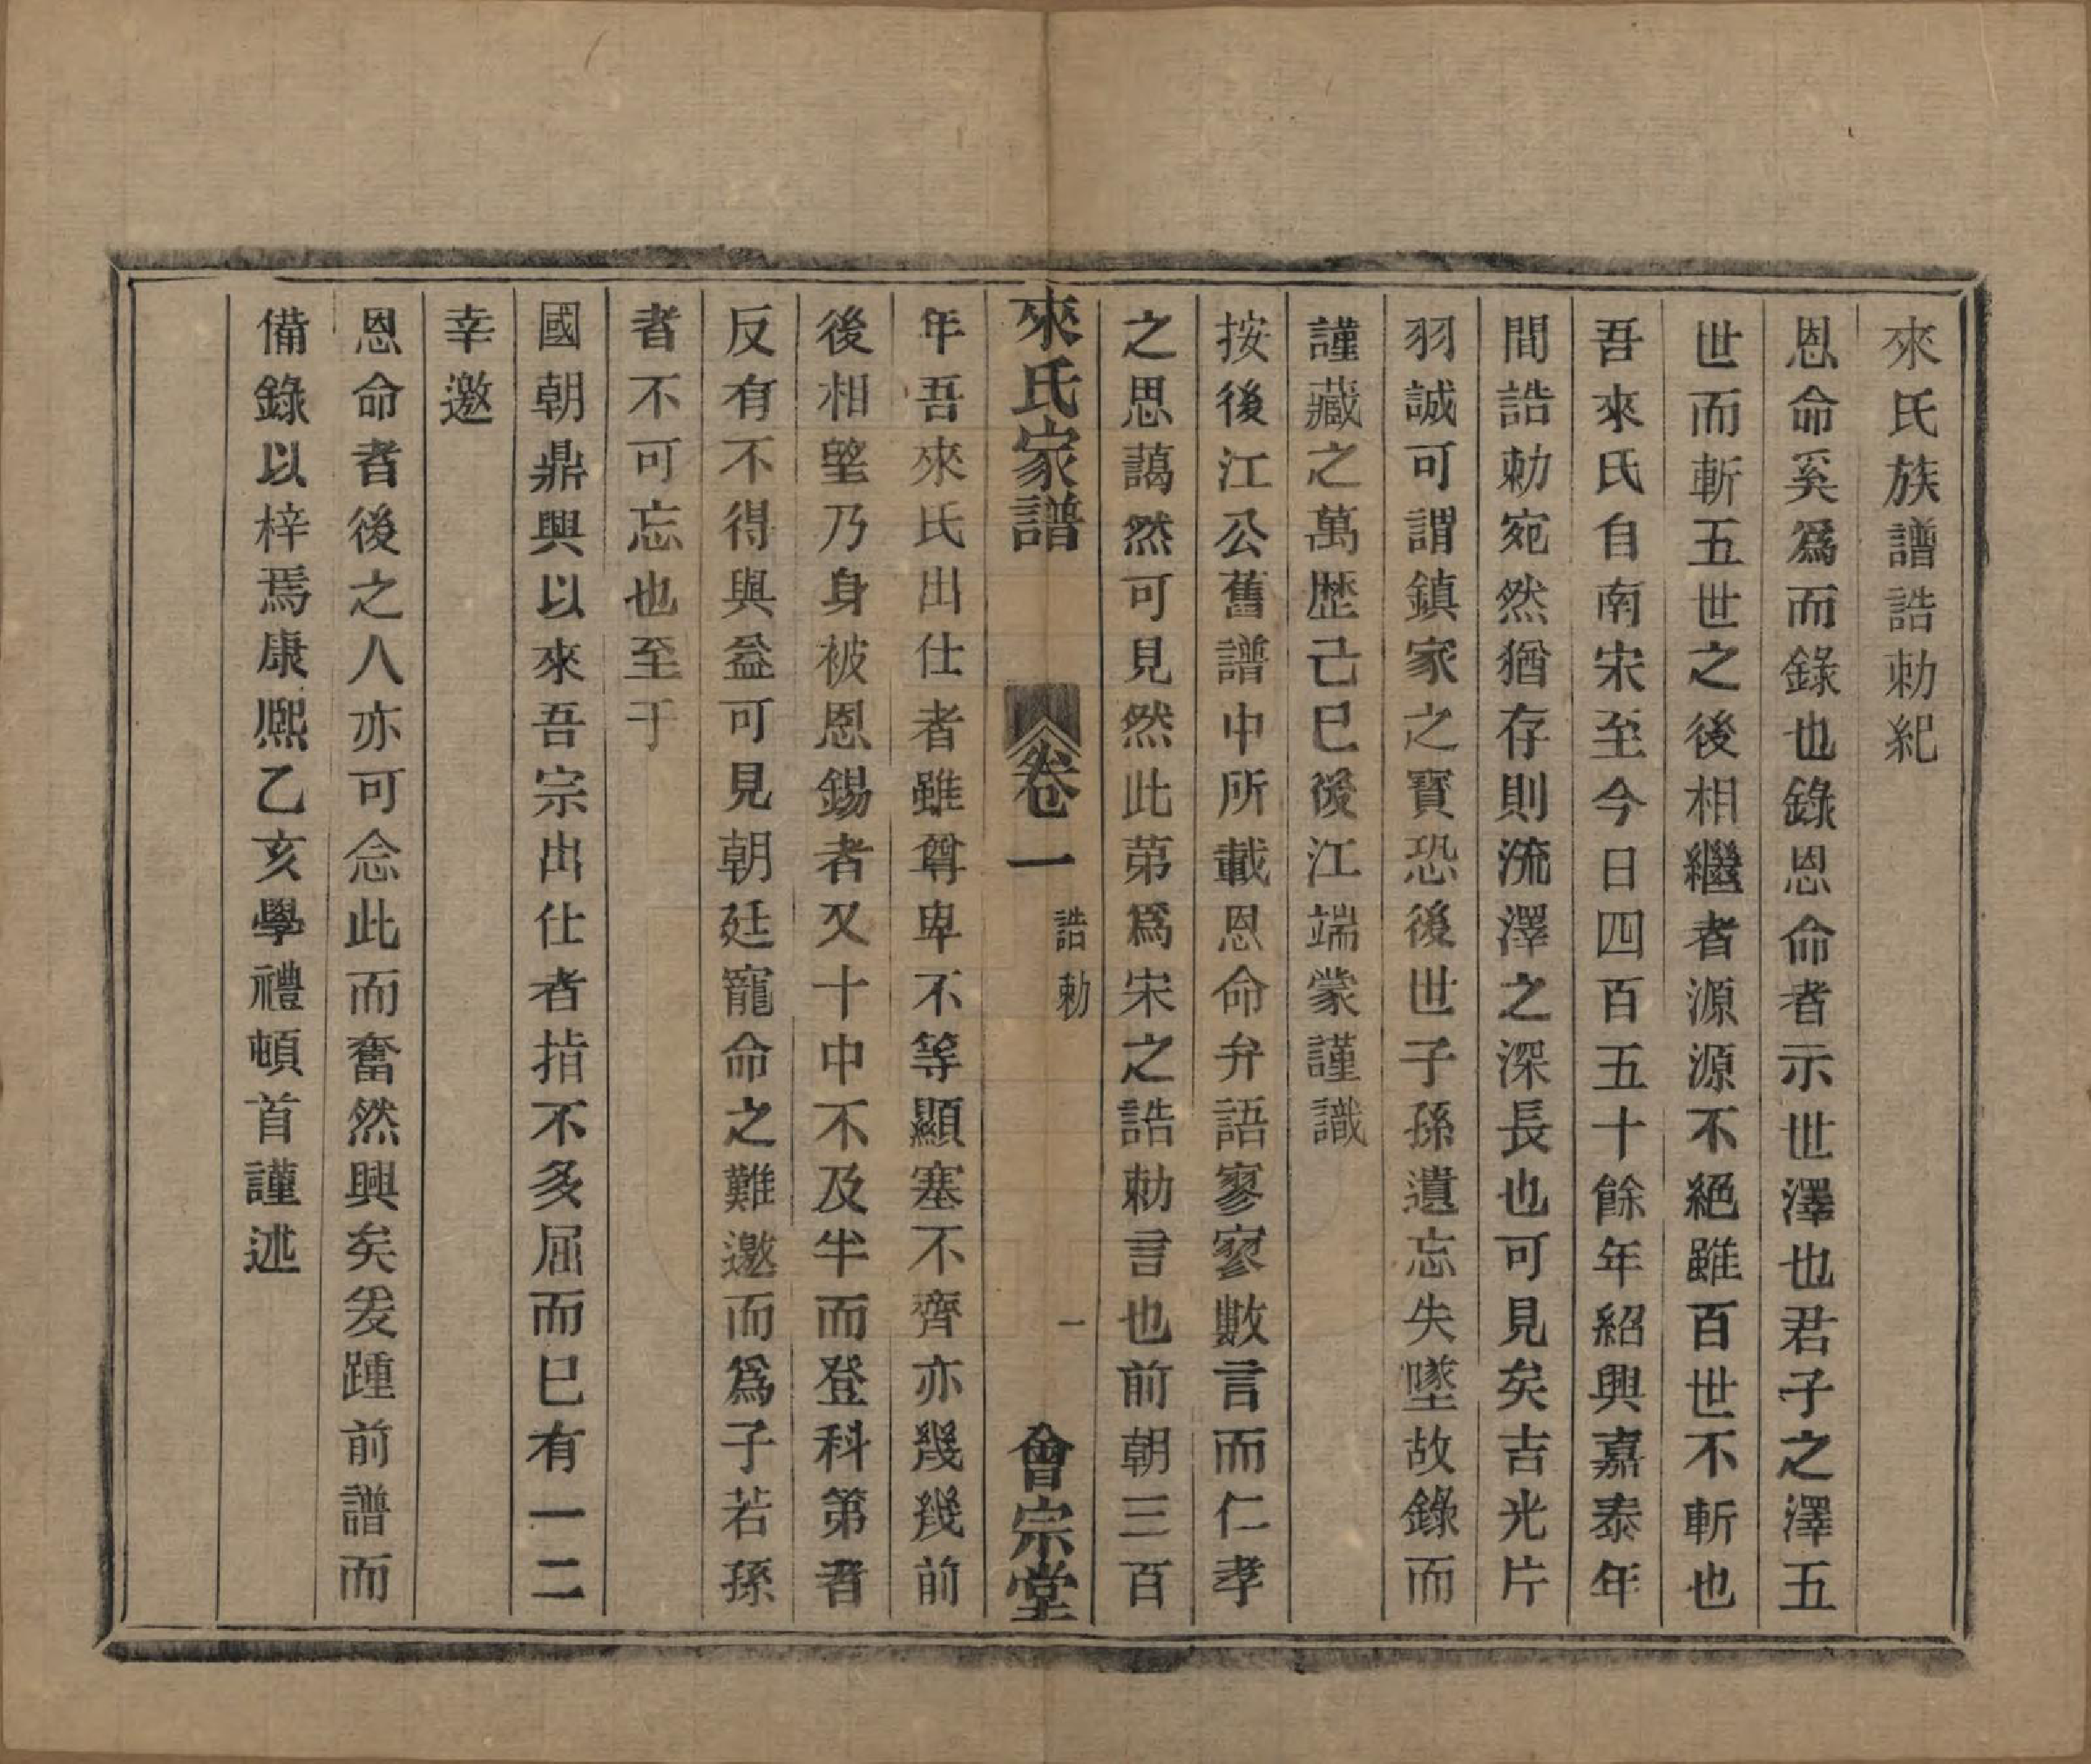 來氏族譜誥勅紀
恩命奚爲而錄也錄恩命者示世澤也君子之澤五
世而斬五世之後相繼者源源不絕雖百世不斬也
吾來氏自南宋至今日四百五十餘年紹興嘉泰年
間誥勅宛然猶存則流澤之深長也可見矣吉光片
羽誠可謂鎮家之寶恐後世子孫遺忘失墜故錄而
謹藏之萬歷己巳後江端蒙謹識
按後江公舊譜中所載恩命弁語寥寥數言而仁孝
之思藹然可見然此第爲宋之誥勅言也前朝三百
來氏家譜 卷一 誥勅 一 會宗堂
年吾來氏出仕者雖尊卑不等顯塞不齊亦幾幾前
後相望乃身被恩錫者又十中不及半而登科第者
反有不得與益可見朝廷寵命之難邀而爲子若孫
者不可忘也至于
國朝鼎興以來吾宗出仕者指不多屈而巳有一二
幸邀
恩命者後之人亦可念此而奮然興矣爰踵前譜而
備錄以梓焉康熙乙亥學禮頓首謹述